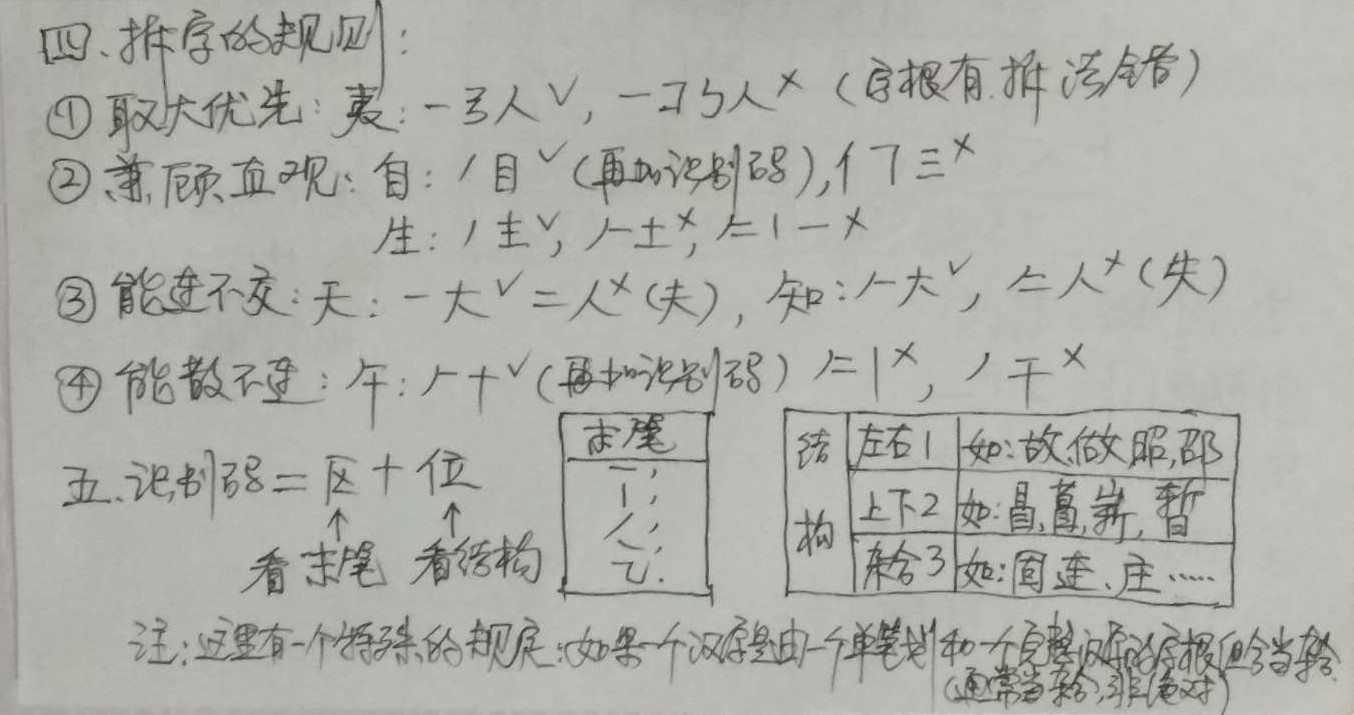 四、拆字的规则:
① 取大优先: 夷: 一弓人√, 一コ㇉人× (字根有拆法错)
② 兼顾直观: 自: 丿目√(再加识别码), 亻㇆三×
生: 丿𰀁√, 𠂉土×, 丨一×
③ 能连不交: 天: 一大√二人×(夫), 知: 𠂉大√, 人×(失)
④ 能散不连: 午: 𠂉十√(再加识别码) 丨×, 丿干×
五、识别码=区+位
↑ ↑
看末尾 看结构
末尾
一,
丨,
八,
乙.
结构
左右1 如:故,做,昭,邵
上下2 如:昌,暂
杂合3 如:固,连、庄……
注:这里有一个特殊的规定:如果一个汉字是由一个单笔划和一个完整汉字的字根组合当杂合.
(通常当杂合,非绝对)